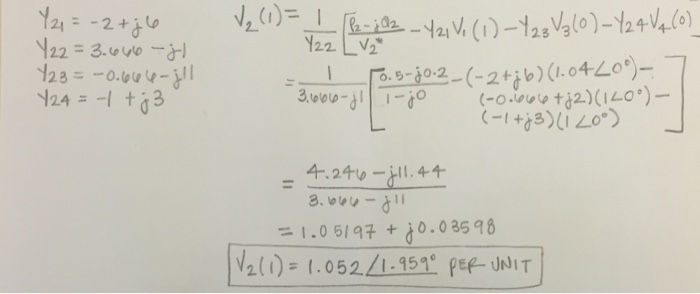 Y21 = -2 + j6
Y22 = 3.666 - j1
Y23 = -0.666 - j11
Y24 = -1 + j3
V2(1) = 1/Y22 [ (P2 - jQ2)/V2* - Y21V1(1) - Y23V3(0) - Y24V4(0)
= 1/(3.666 - j1) [ (0.5 - j0.2)/(1 - j0) - (-2 + j6)(1.04∠0°) -
(-0.666 + j2)(1∠0°) -
(-1 + j3)(1∠0°) ]
= (4.246 - j11.44)/(3.666 - j11)
= 1.05197 + j0.03598
V2(1) = 1.052 ∠1.959° PER UNIT